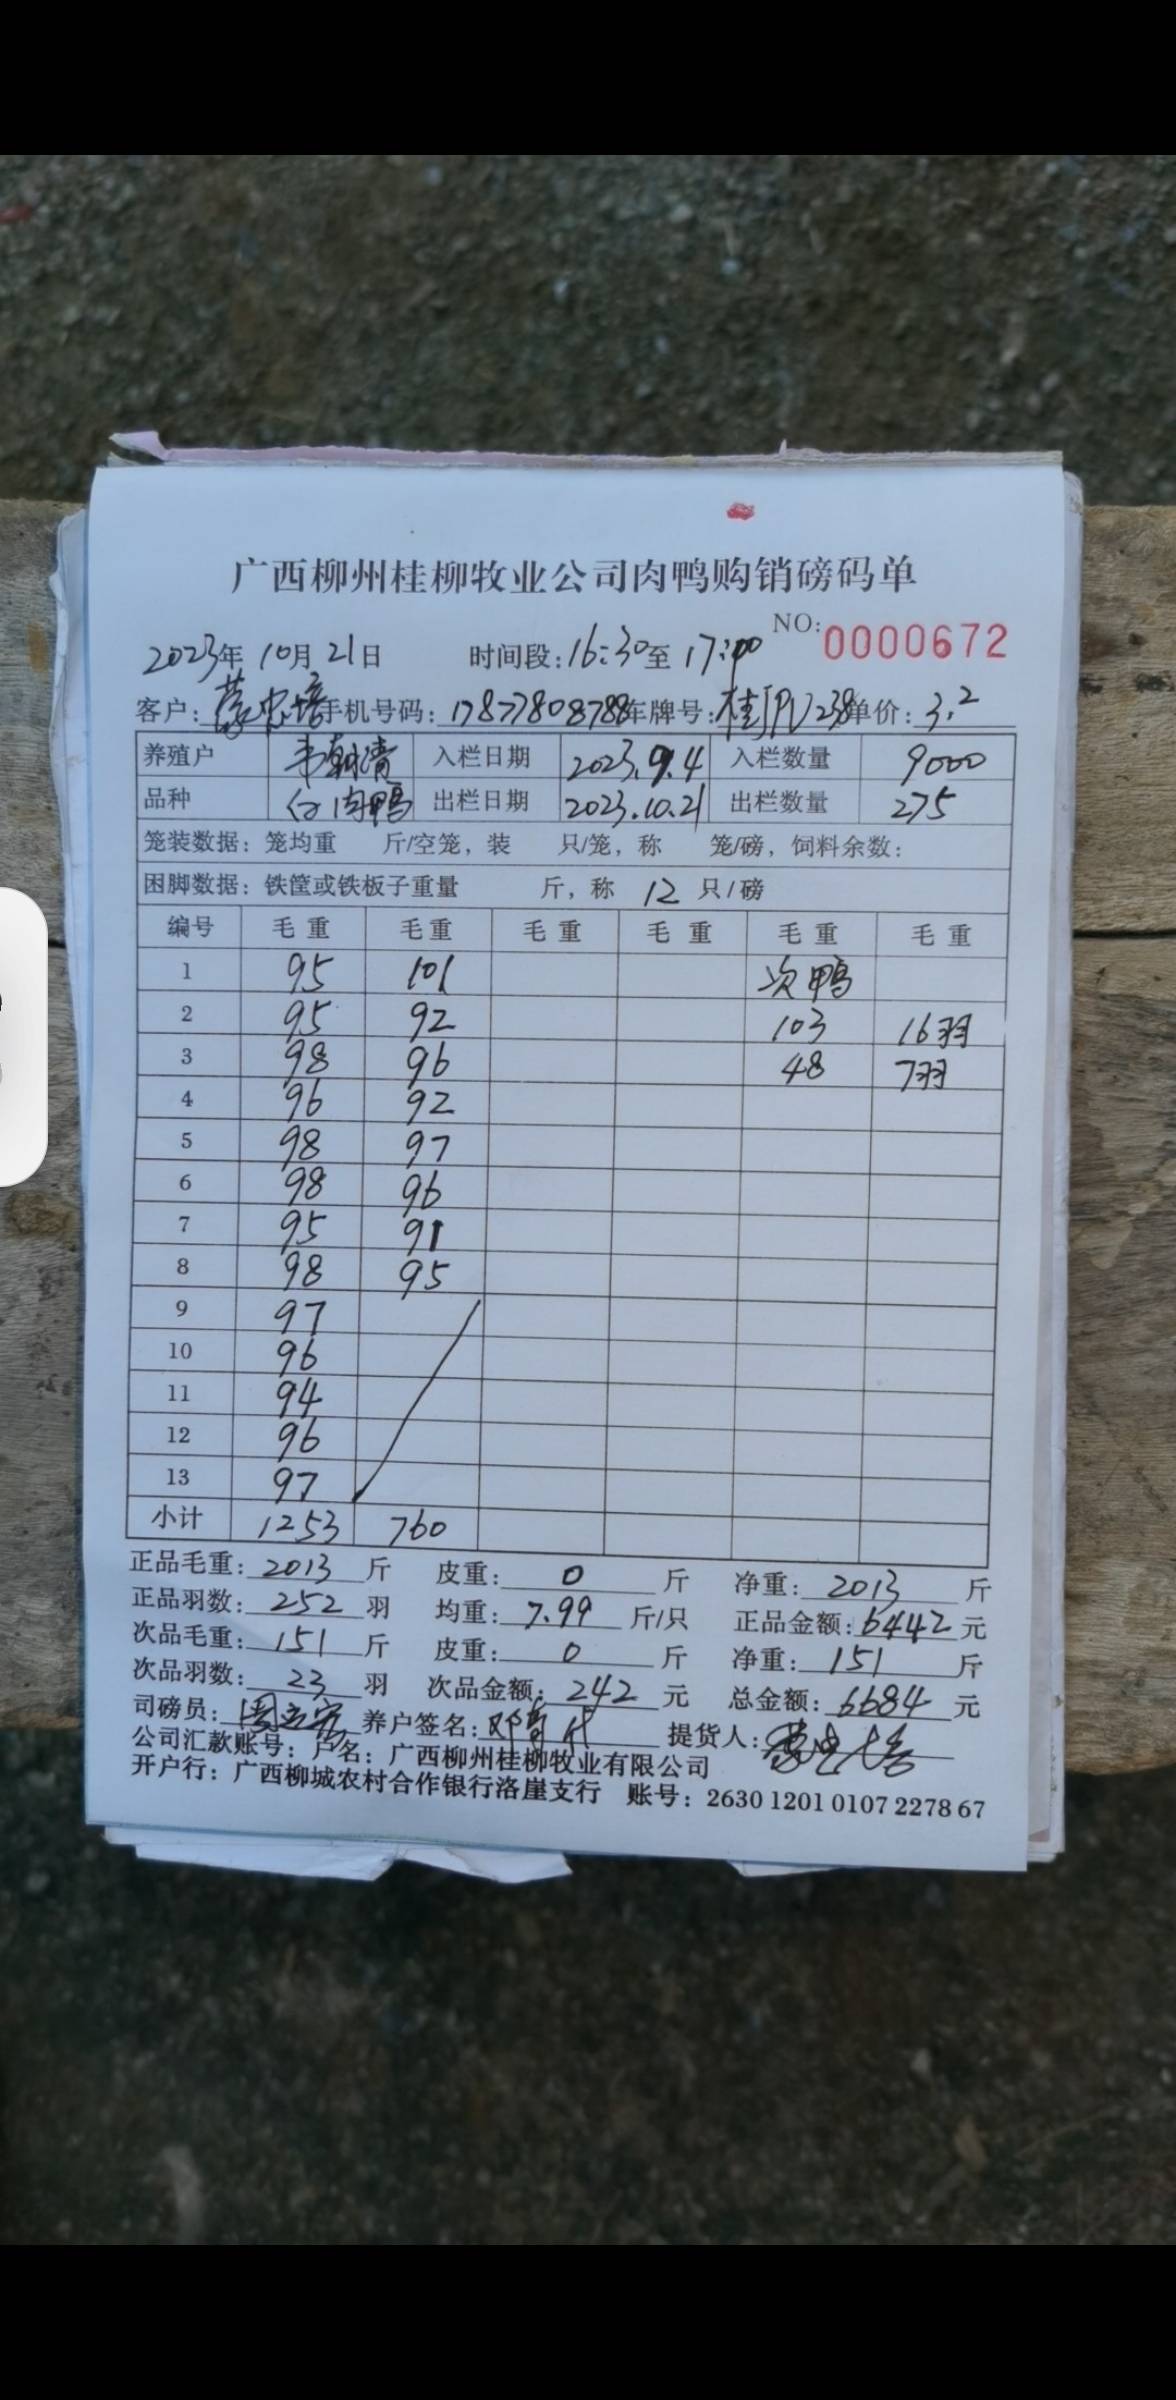 广西柳州桂柳牧业公司肉鸭购销磅码单
NO: 0000672
2023年 10月 21日 时间段: 16:30至 17:00
客户: 蒙忠培 手机号码: 17877808788 车牌号: 单价: 3.2
养殖户 入栏日期 2023.9.4 入栏数量 9000
品种 白肉鸭 出栏日期 2023.10.21 出栏数量 275
笼装数据: 笼均重 斤/空笼, 装 只/笼, 称 笼/磅, 饲料余数:
困脚数据: 铁筐或铁板子重量 斤, 称 12 只/磅
编号 毛重 毛重 毛重 毛重 毛重 毛重
1 95 101 次鸭
2 95 92 103 16羽
3 98 96 48 7羽
4 96 92
5 98 97
6 98 96
7 95 91
8 98 95
9 97
10 96
11 94
12 96
13 97
小计 1253 760
正品毛重: 2013 斤 皮重: 0 斤 净重: 2013 斤
正品羽数: 252 羽 均重: 7.99 斤/只 正品金额: 6442 元
次品毛重: 151 斤 皮重: 0 斤 净重: 151 斤
次品羽数: 23 羽 次品金额: 242 元 总金额: 6684 元
司磅员: 养户签名: 提货人:
公司汇款账号: 户名: 广西柳州桂柳牧业有限公司
开户行: 广西柳城农村合作银行洛崖支行 账号: 2630 1201 0107 2278 67